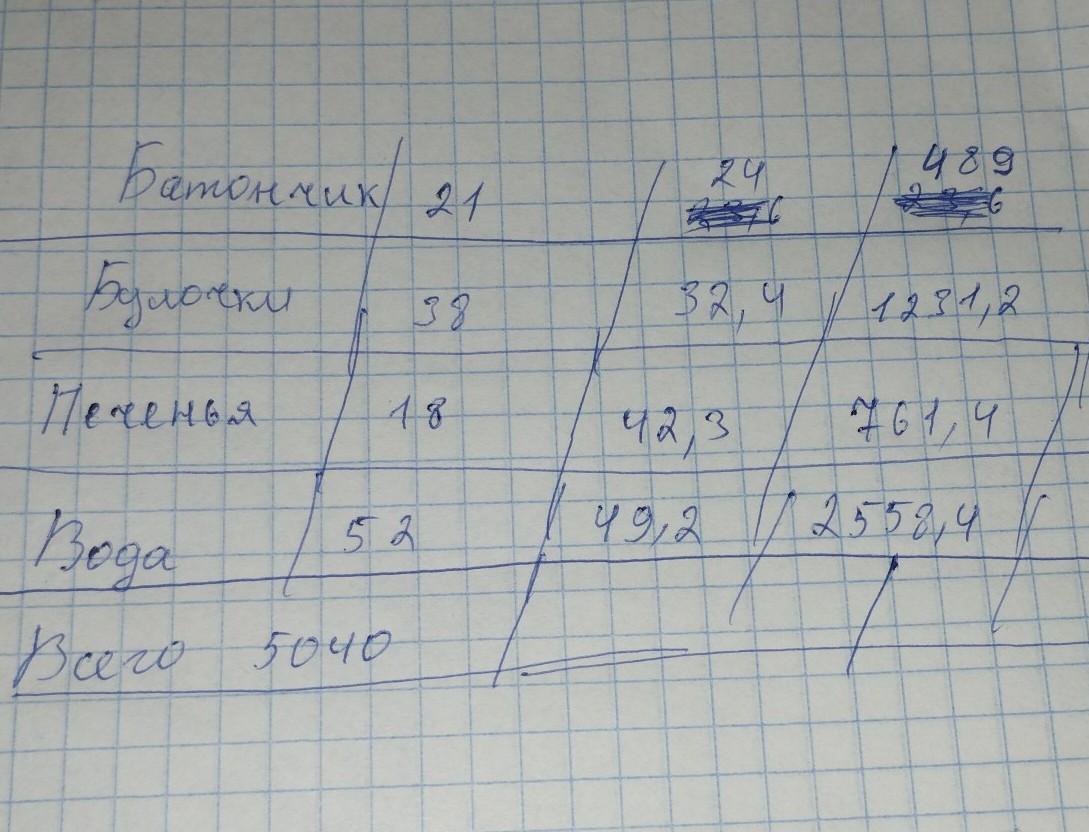 Батончик 21 24 489
Булочки 38 32,4 1231,2
Печенья 18 42,3 761,4
Вода 52 49,2 2558,4
Всего 5040